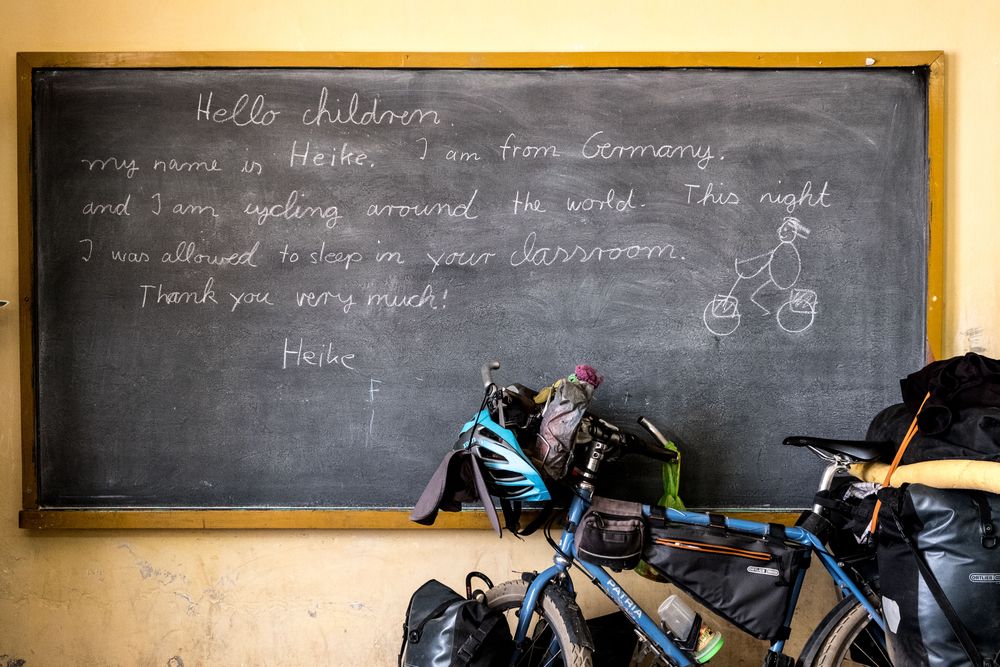 Hello children.
my name is Heike. I am from Germany.
and I am cycling around the world. This night
I was allowed to sleep in your classroom.
Thank you very much!
Heike
F
PATRIA
ORTLIEB
ORTLIEB